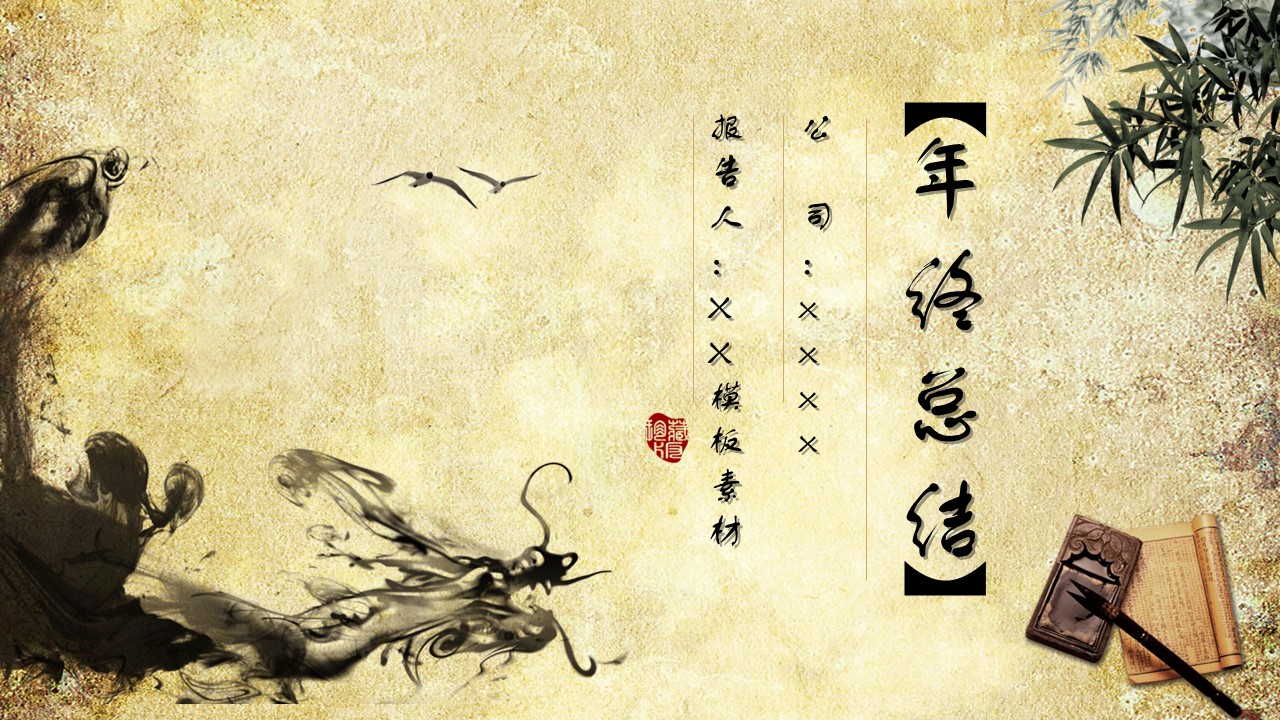 【年终总结】
公 司：××××
报告人：××模板素材